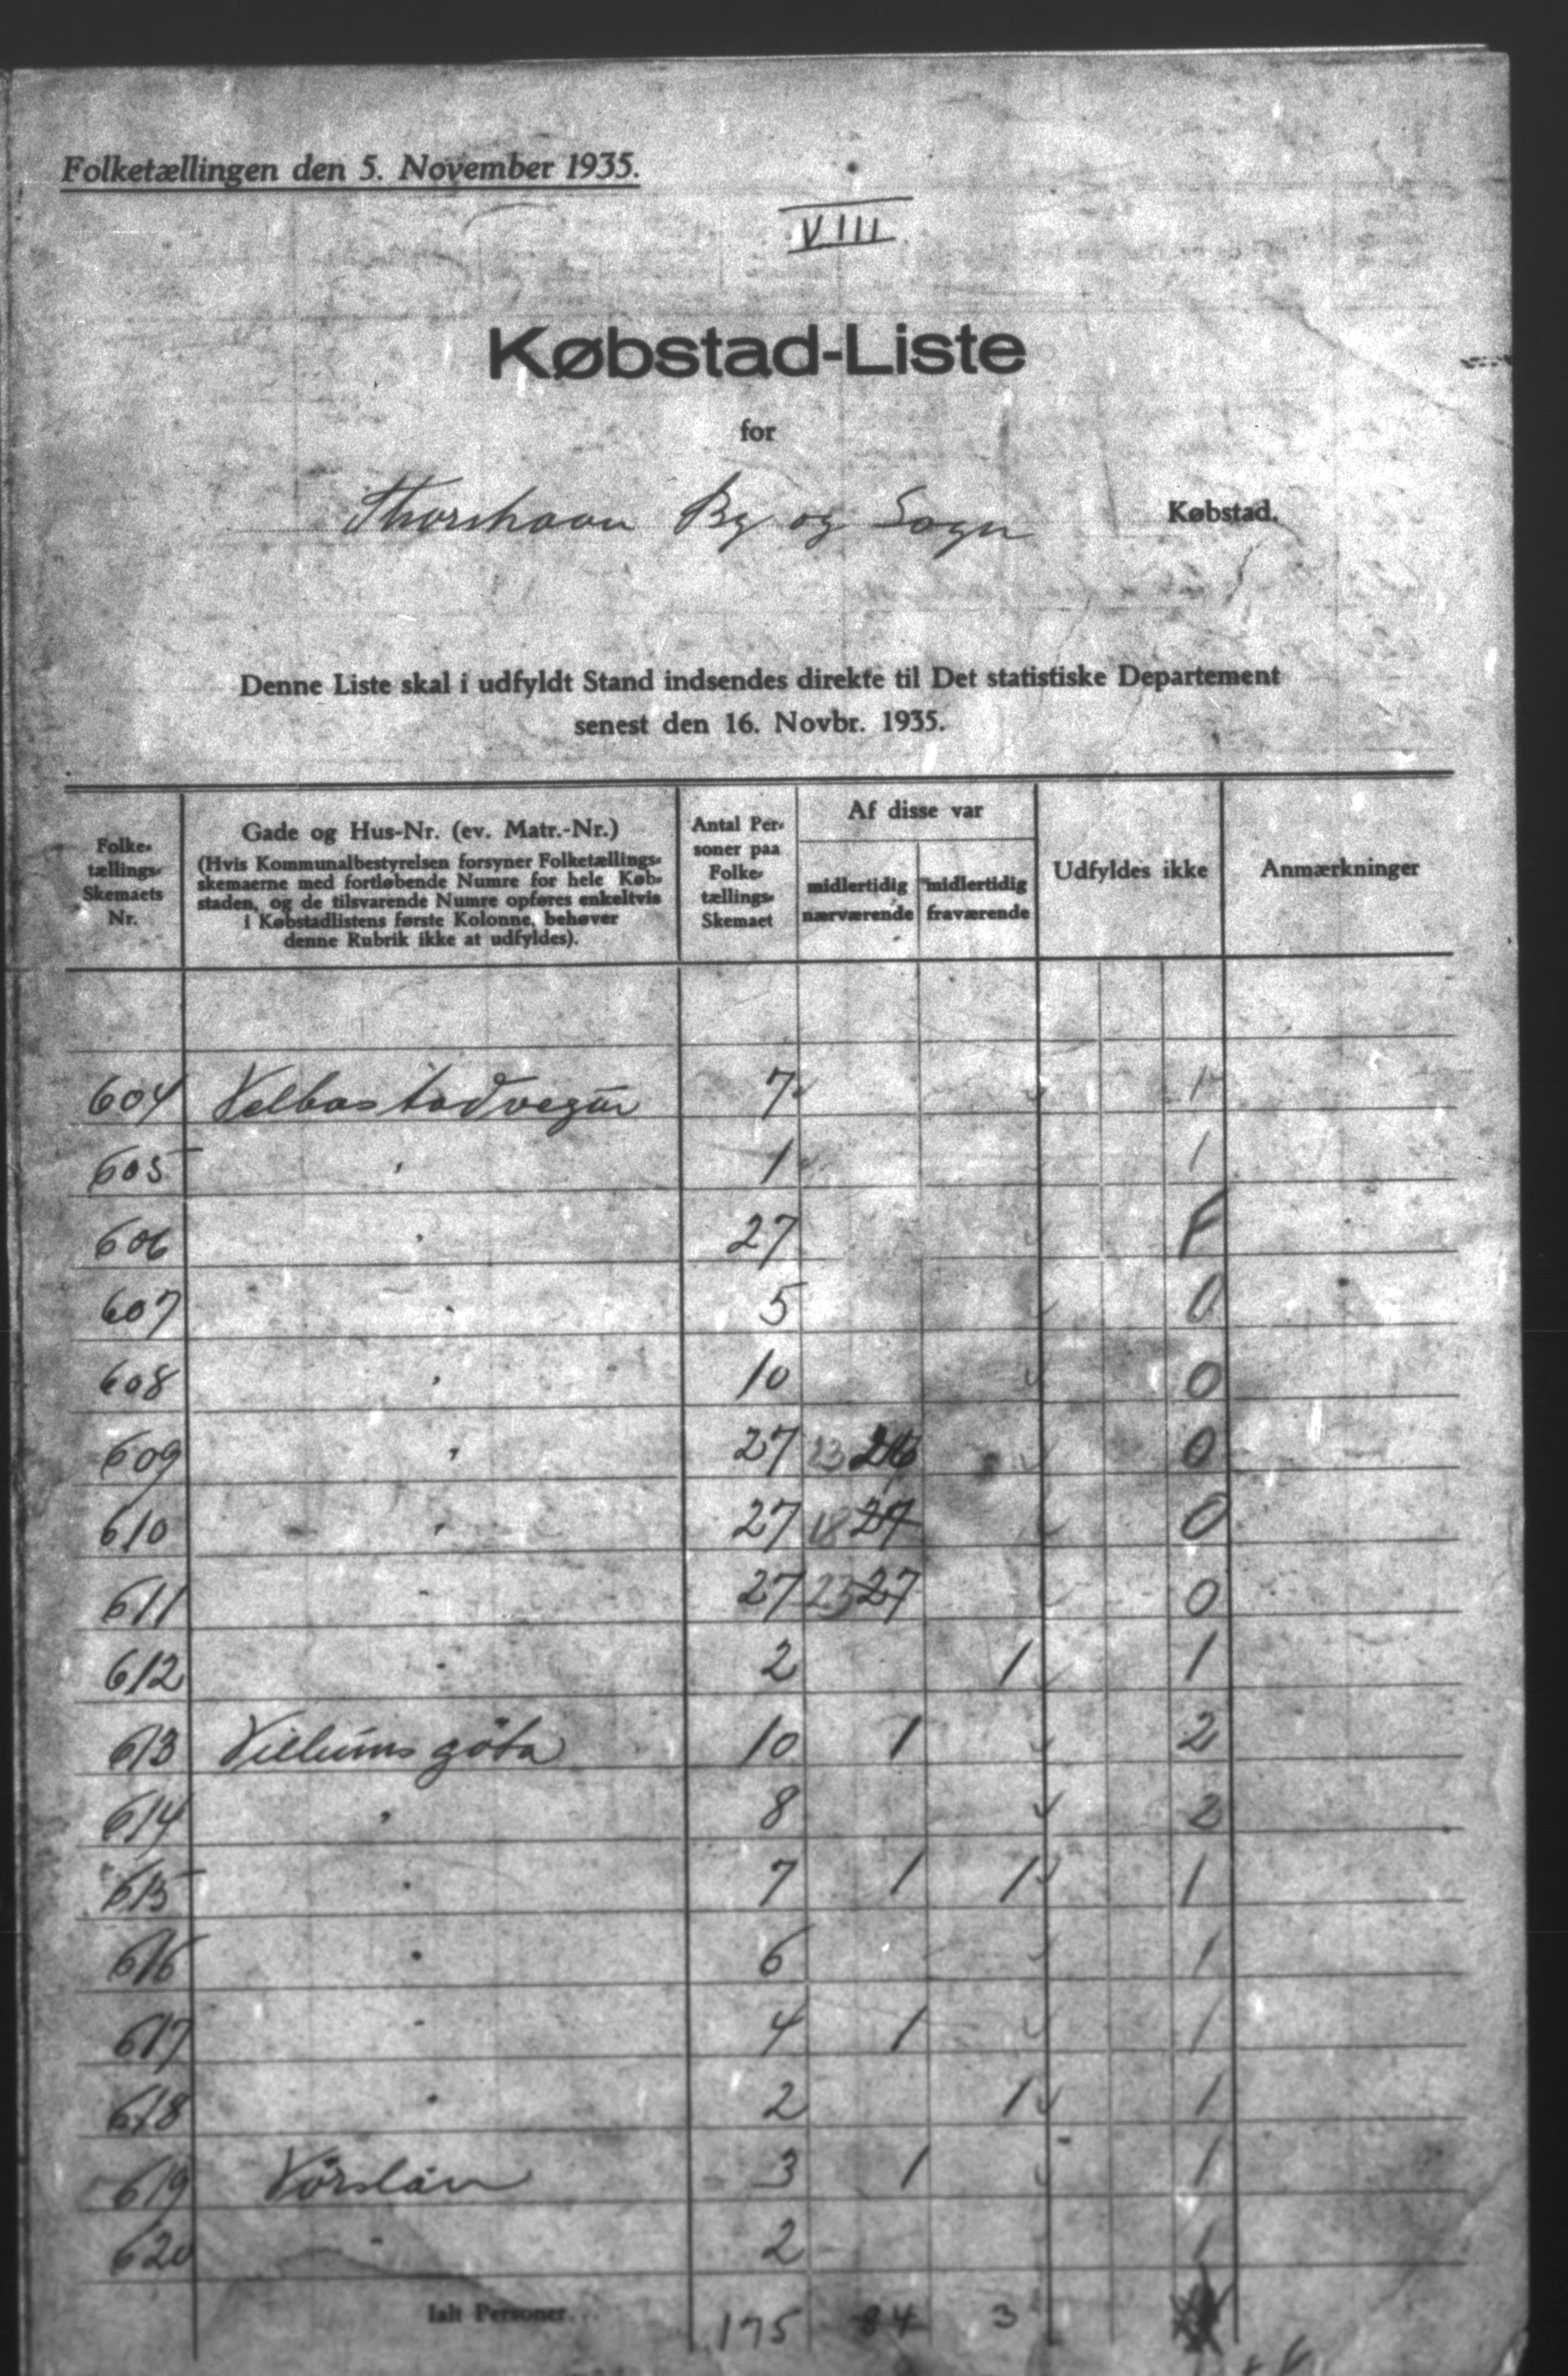 Folketællingen den 5. November 1935.
VIII
Købstad-Liste
for
Thorshavn By og Sogn Købstad.
Denne Liste skal i udfyldt Stand indsendes direkte til Det statistiske Departement
senest den 16. Novbr. 1935.
Folke-
tællings-
Skemaets
Nr.
Gade og Hus-Nr. (ev. Matr.-Nr.)
(Hvis Kommunalbestyrelsen forsyner Folketællings-
skemaerne med fortløbende Numre for hele Køb-
staden, og de tilsvarende Numre opføres enkeltvis
i Købstadlistens første Kolonne, behøver
denne Rubrik ikke at udfyldes).
Antal Per-
soner paa
Folke-
tællings-
Skemaet
Af disse var
midlertidig
nærværende
midlertidig
fraværende
Udfyldes ikke
Anmærkninger
604 Velbastadvegur 7 1
605 " 1 1
606 " 27 F
607 " 5 0
608 " 10 0
609 " 27 23 0
610 " 27 18 27 0
611 " 27 23 27 0
612 " 2 1 1
613 Villumsgöta 10 1 2
614 " 8 2
615 " 7 1 1 1
616 " 6 1
617 " 4 1 1
618 " 2 1 1
619 3 1 1
620 " 2 1
Ialt Personer... 175 84 3